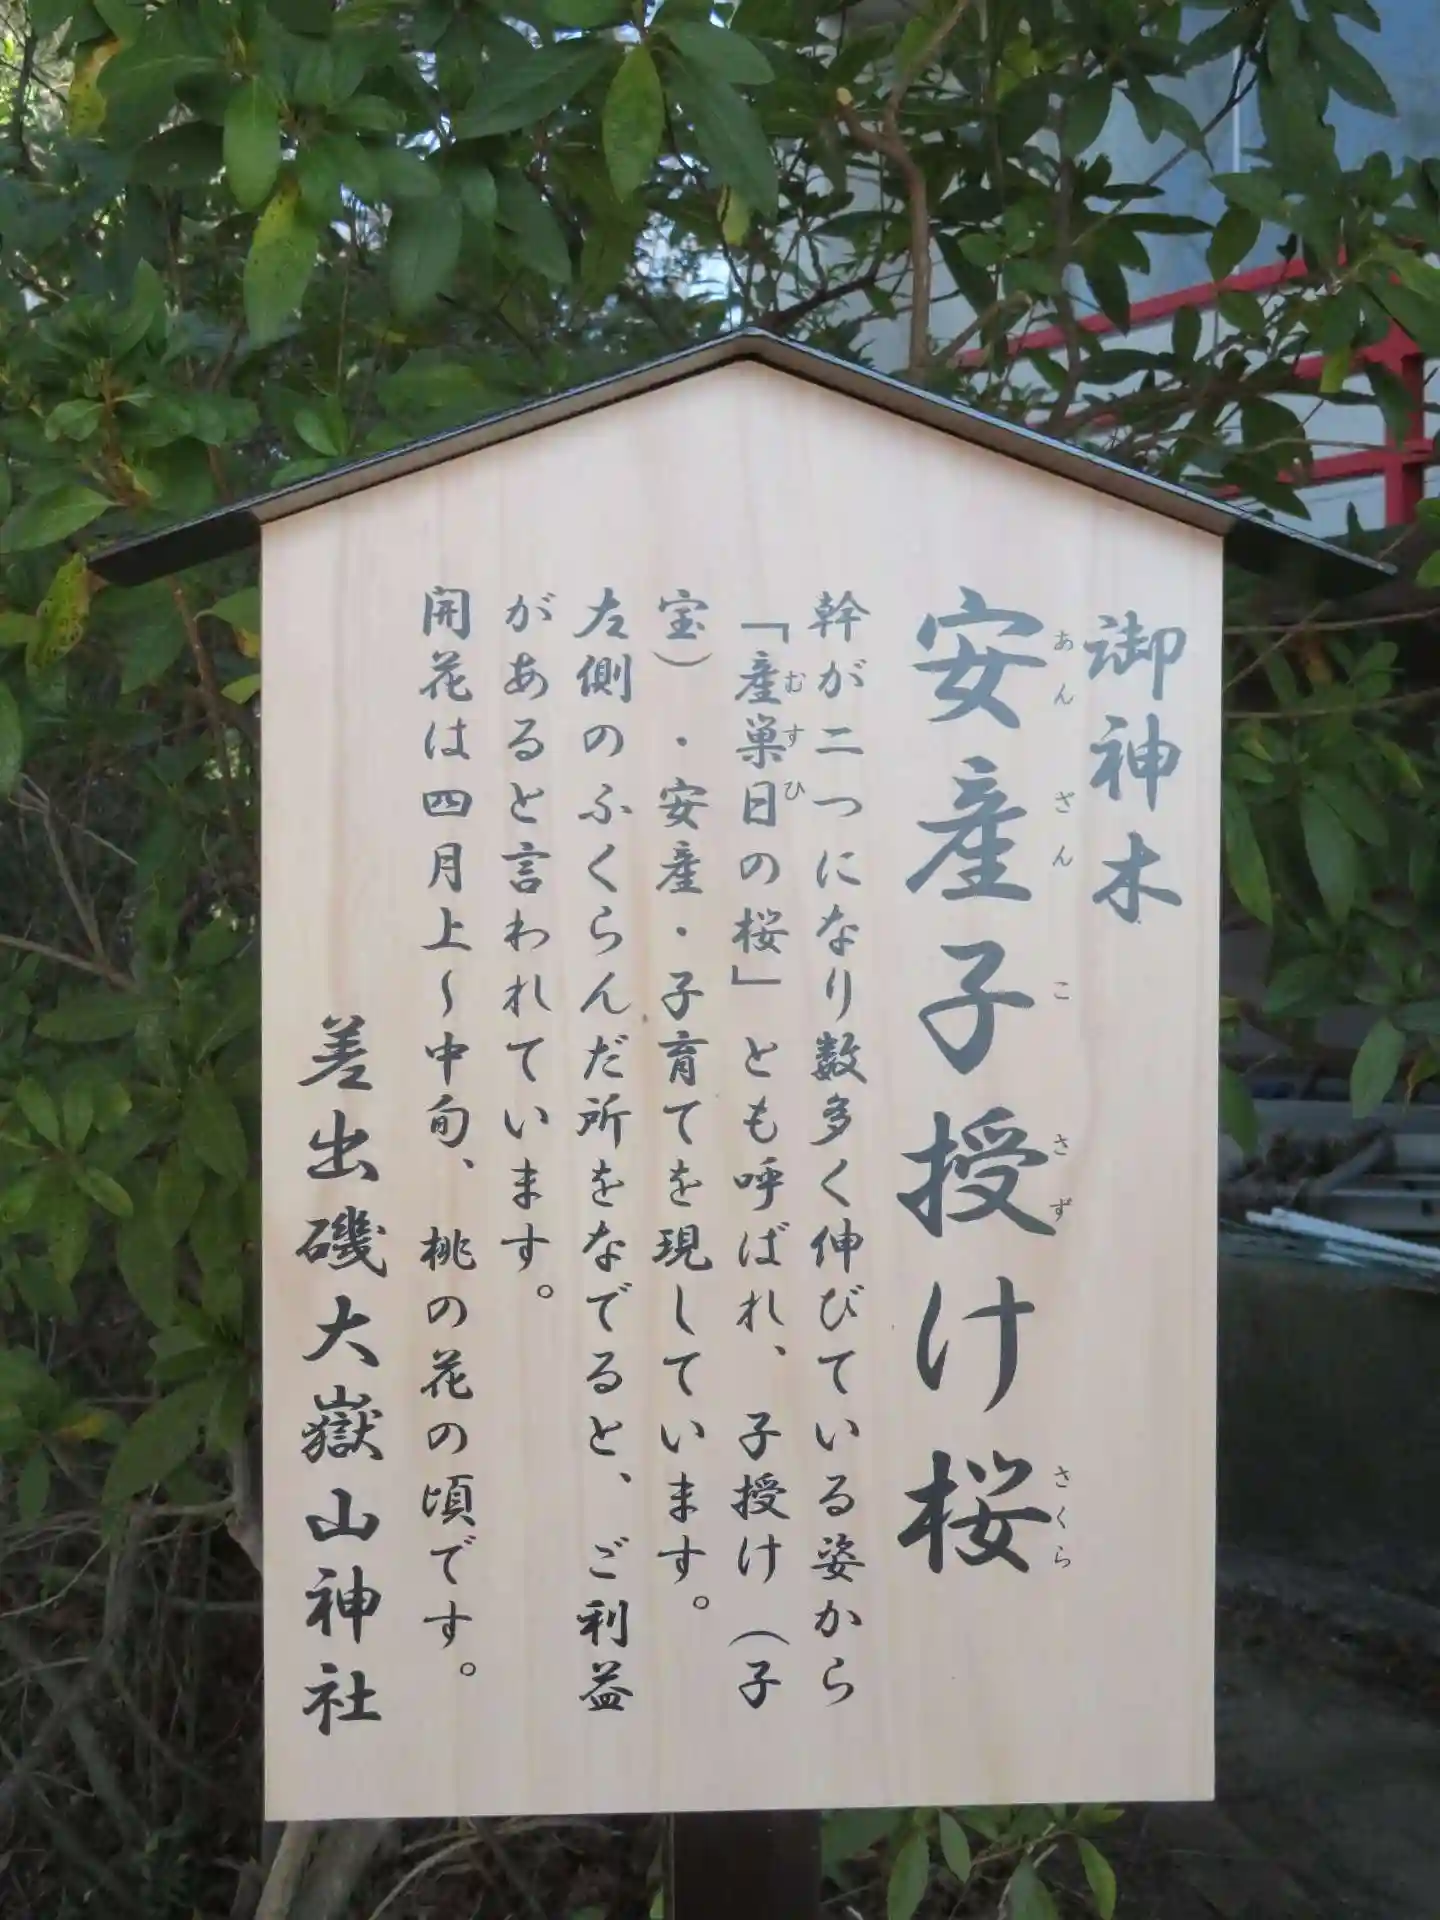 御神木
安産子授け桜
あんざんこさずさくら
幹が二つになり数多く伸びている姿から
「産巣日の桜」とも呼ばれ、子授け（子
むすひ
宝）・安産・子育てを現しています。
左側のふくらんだ所をなでると、ご利益
があると言われています。
開花は四月上〜中旬、桃の花の頃です。
差出磯大嶽山神社